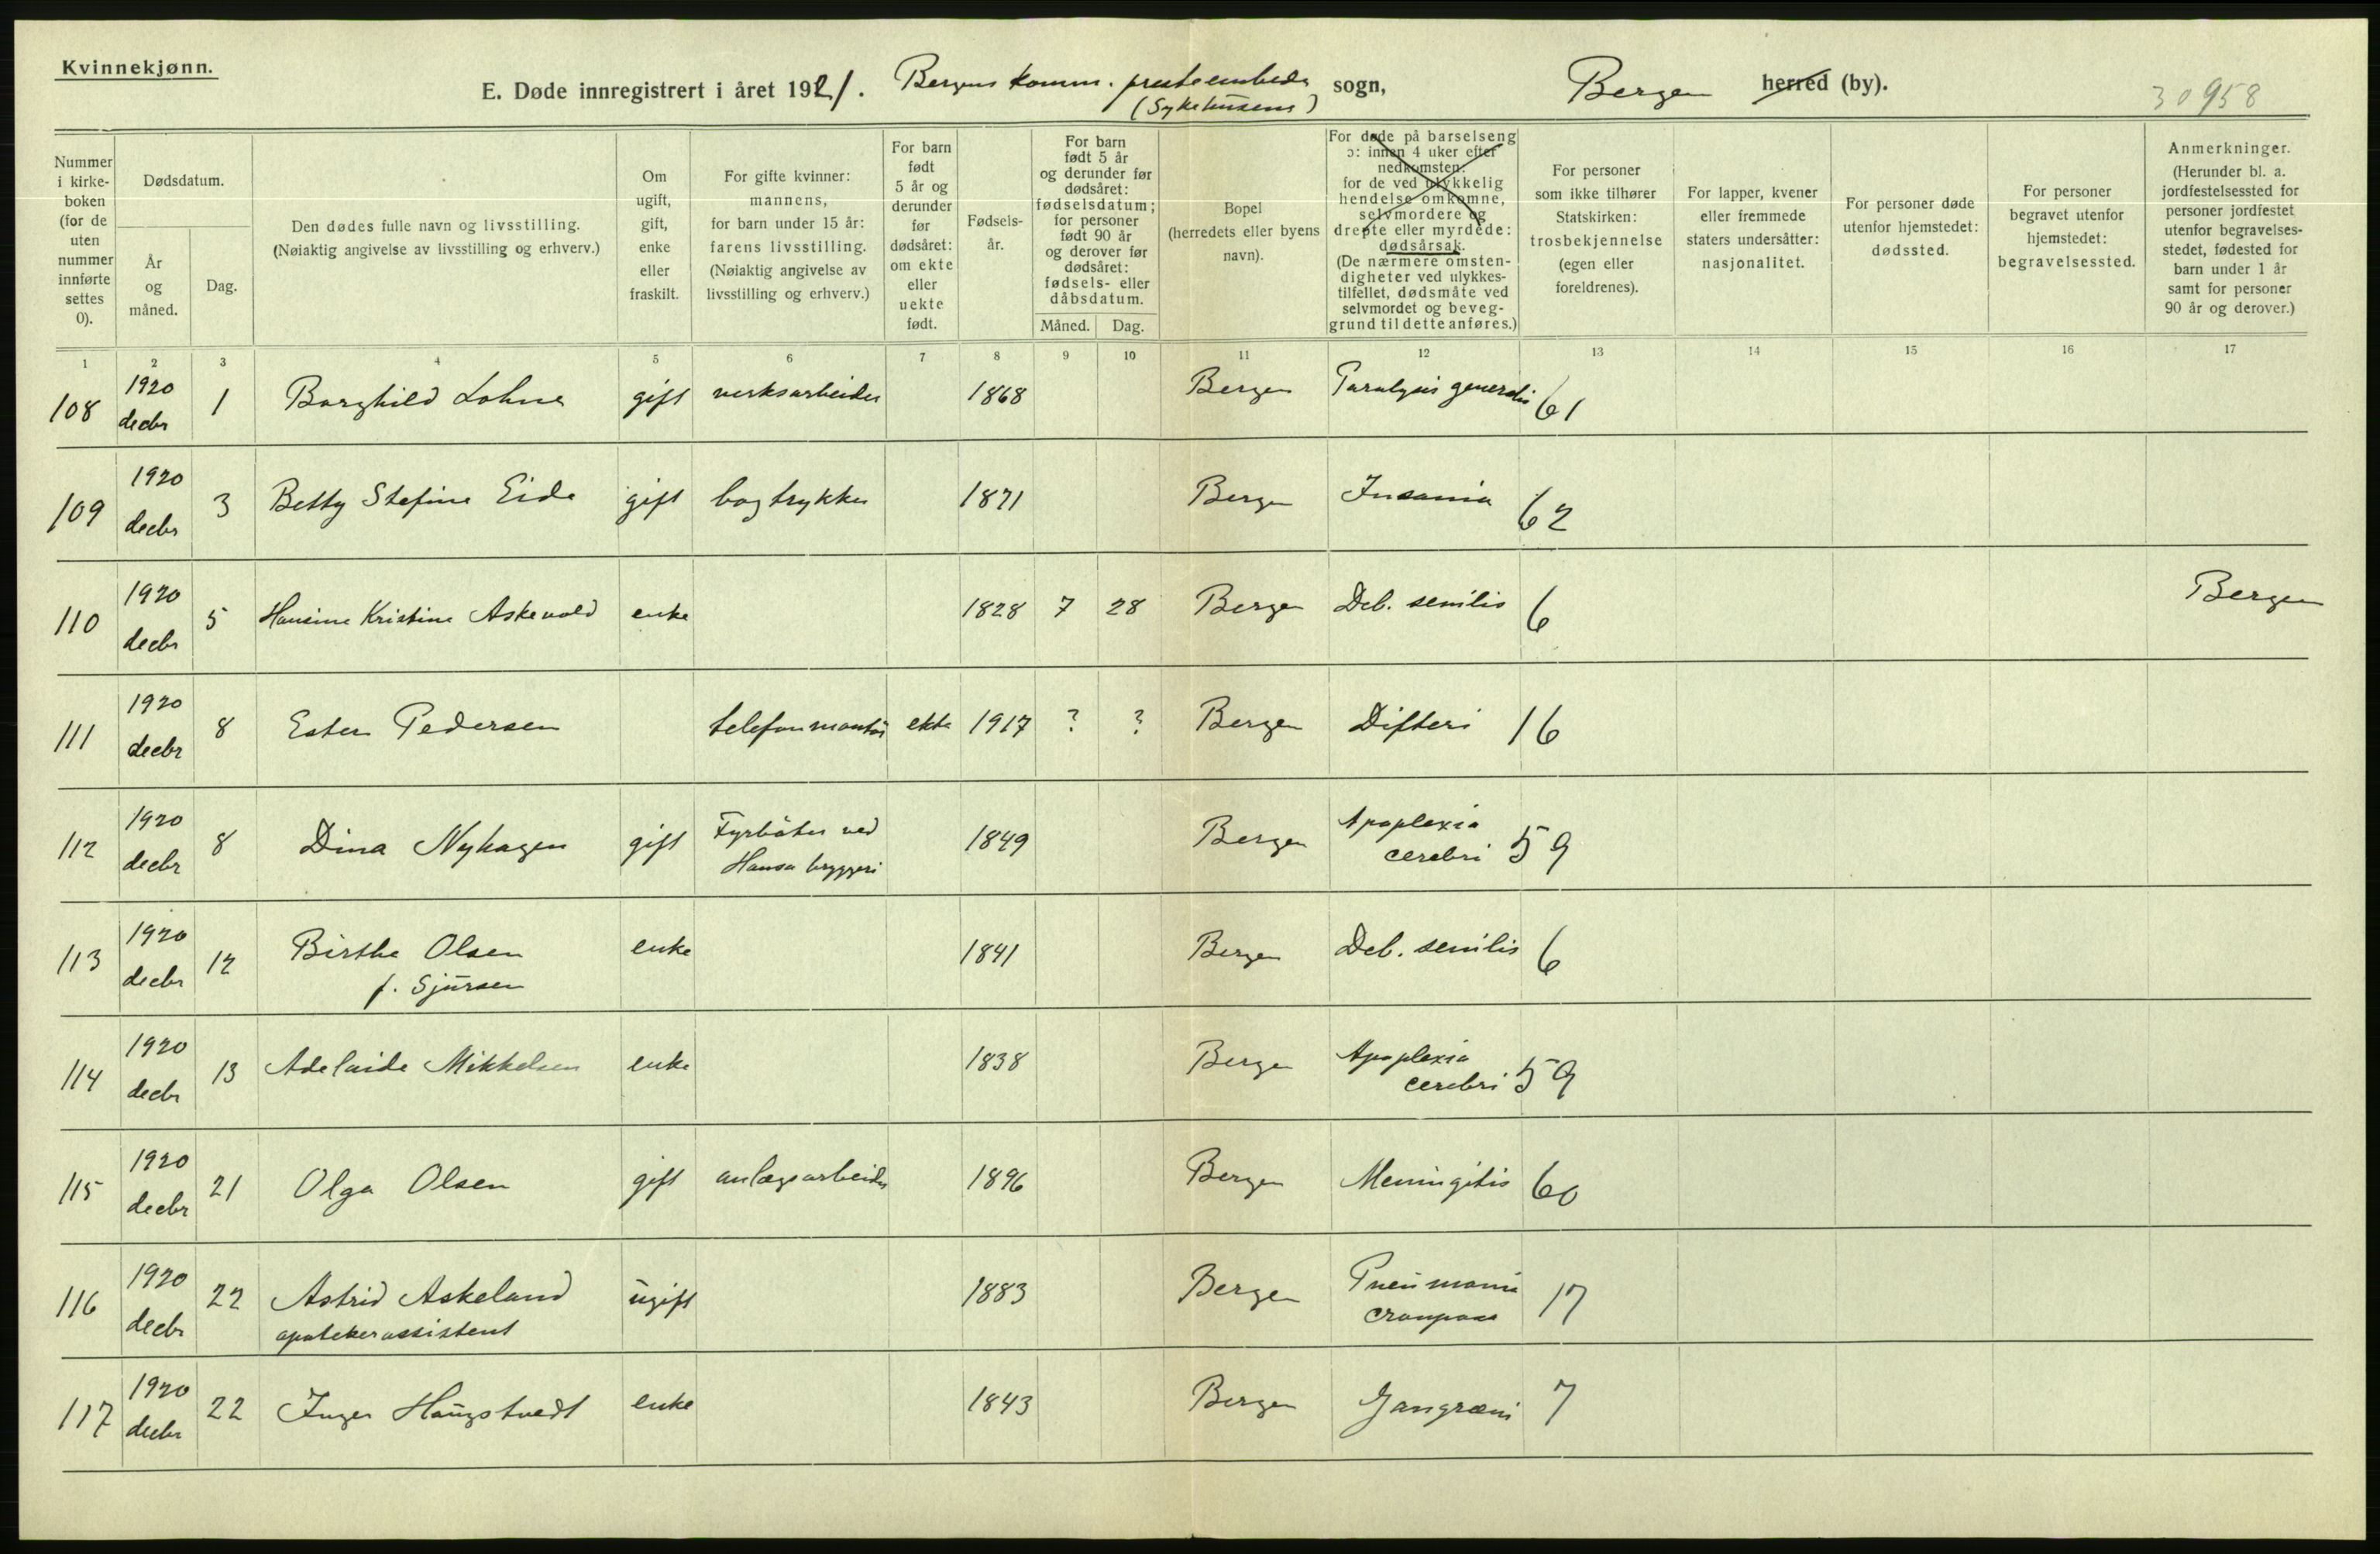 Kvinnekjønn.
E. Døde innregistrert i året 1921. Bergens komm. presteembede (Sykehusene) sogn, Bergen herred (by). 30958
Nummer i kirkeboken (for de uten nummer innførte settes 0).
Dødsdatum.
År og måned.
Dag.
Den dødes fulle navn og livsstilling. (Nøiaktig angivelse av livsstilling og erhverv.)
Om ugift, gift, enke eller fraskilt.
For gifte kvinner: mannens, for barn under 15 år: farens livsstilling. (Nøiaktig angivelse av livsstilling og erhverv.)
For barn født 5 år og derunder før dødsåret: om ekte eller uekte født.
Fødselsår.
For barn født 5 år og derunder før dødsåret: fødselsdatum; for personer født 90 år og derover før dødsåret: fødsels- eller dåbsdatum.
Måned. Dag.
Bopel (herredets eller byens navn).
For døde på barselseng ɔ: innen 4 uker efter nedkomsten: for de ved ulykkelig hendelse omkomne, selvmordere og drepte eller myrdede: dødsårsak. (De nærmere omstendigheter ved ulykkestilfellet, dødsmåte ved selvmordet og beveggrund til dette anføres.)
For personer som ikke tilhører Statskirken: trosbekjennelse (egen eller foreldrenes).
For lapper, kvener eller fremmede staters undersåtter: nasjonalitet.
For personer døde utenfor hjemstedet: dødssted.
For personer begravet utenfor hjemstedet: begravelsessted.
Anmerkninger. (Herunder bl. a. jordfestelsessted for personer jordfestet utenfor begravelsesstedet, fødested for barn under 1 år samt for personer 90 år og derover.)
1 2 3 4 5 6 7 8 9 10 11 12 13 14 15 16 17
108 1920 decbr 1 Borghild Lohne gift verksarbeider 1868 Bergen Paralysis generalis 61
109 1920 decbr 3 Betty Stefine Eide gift bogtrykker 1871 Bergen Insania 62
110 1920 decbr 5 Hansine Kristine Askevold enke 1828 7 28 Bergen Deb. senilis 6 Bergen
111 1920 decbr 8 Ester Pedersen telefonmontør ekte 1917 ? ? Bergen Difteri 16
112 1920 decbr 8 Dina Nyhagen gift Fyrbøter ved Hansa bryggeri 1849 Bergen Apoplexia cerebri 59
113 1920 decbr 12 Birthe Olsen f. Sjursen enke 1841 Bergen Deb. senilis 6
114 1920 decbr 13 Adelaide Mikkelsen enke 1838 Bergen Apoplexia cerebri 59
115 1920 decbr 21 Olga Olsen gift anlægsarbeider 1896 Bergen Meningitis 60
116 1920 decbr 22 Astrid Askeland apotekerassistent ugift 1883 Bergen Pneumonia crouposa 17
117 1920 decbr 22 Inger Haugstvedt enke 1843 Bergen Gangræni 7